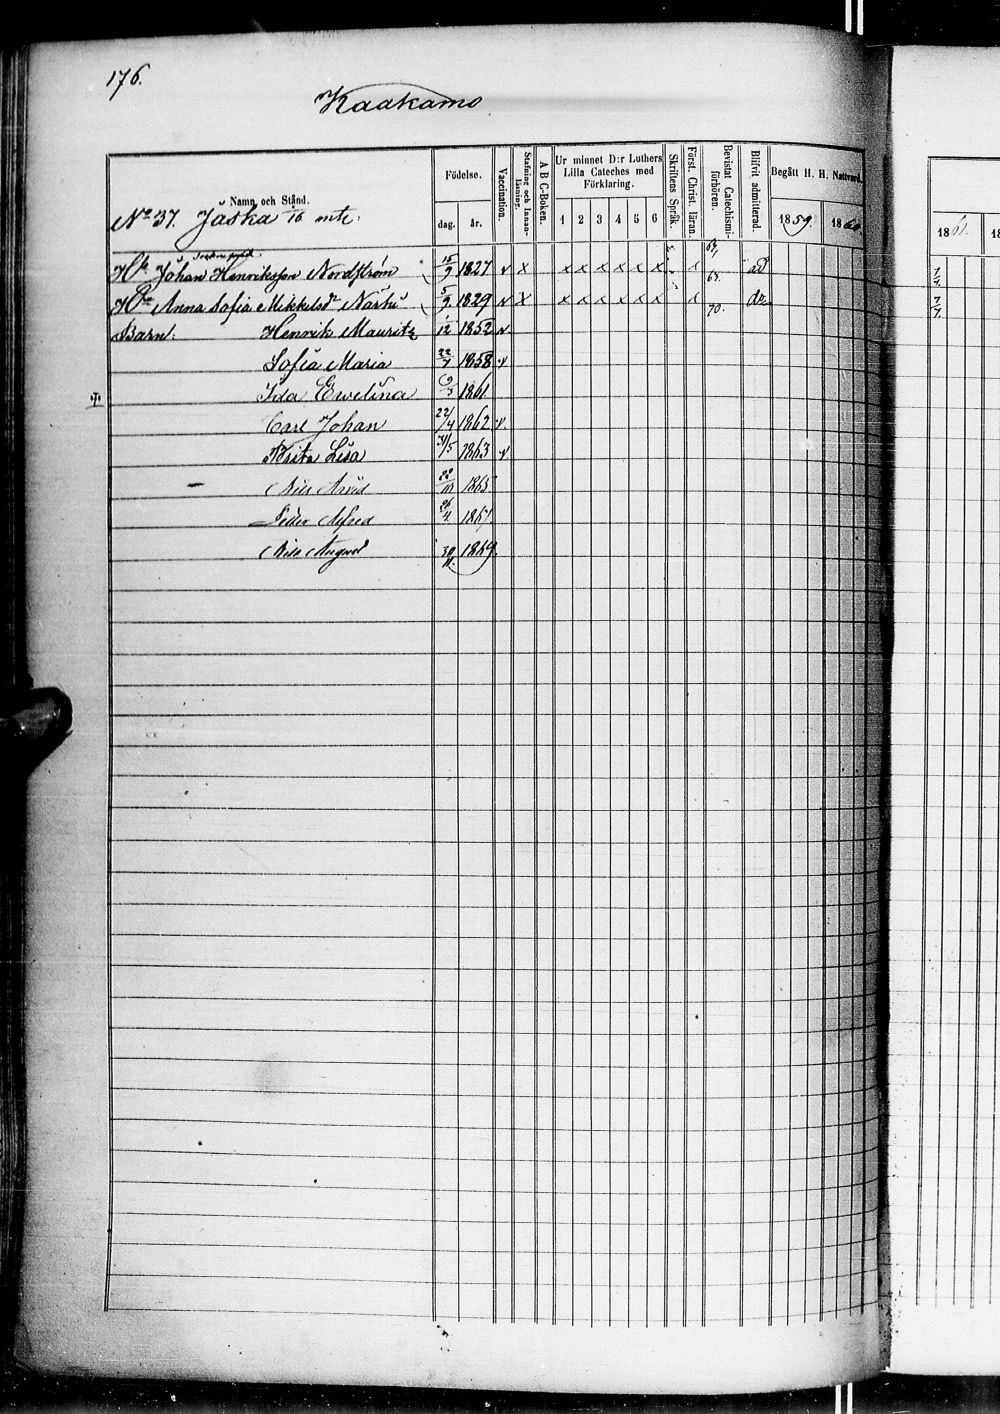 176.
Kaakamo
Namn och Stånd.
Födelse.
dag.
år.
Vaccination.
Stafning och Innan-läsning.
A B C-Boken.
Ur minnet D:r Luthers
Lilla Cateches med
Förklaring.
1 2 3 4 5 6
Skriftens Språk.
Först. Christ. läran.
Bevistat Catechismi-förhören.
Blifvit admitterad.
Begått H. H. Nattvard.
1859. 1860
1861.
No 37. Jaska 1/16 mtl.
Johan Henriksson Nordström 15/9 1827 v x x x x x x x x ad
Anna Sofia Mikkelsdr 5/9 1829 v x x x x x x x x do
70.
Barn: Henrik Mauritz 1/12 1852 v
Sofia Maria 1858 v
Ida Ewelina 1861
Carl Johan 22/4 1862 v.
Brita Lisa 31/5 1863 v
Nils Arvid 1865
Peder Alfred 1867.
Nils August 1869.